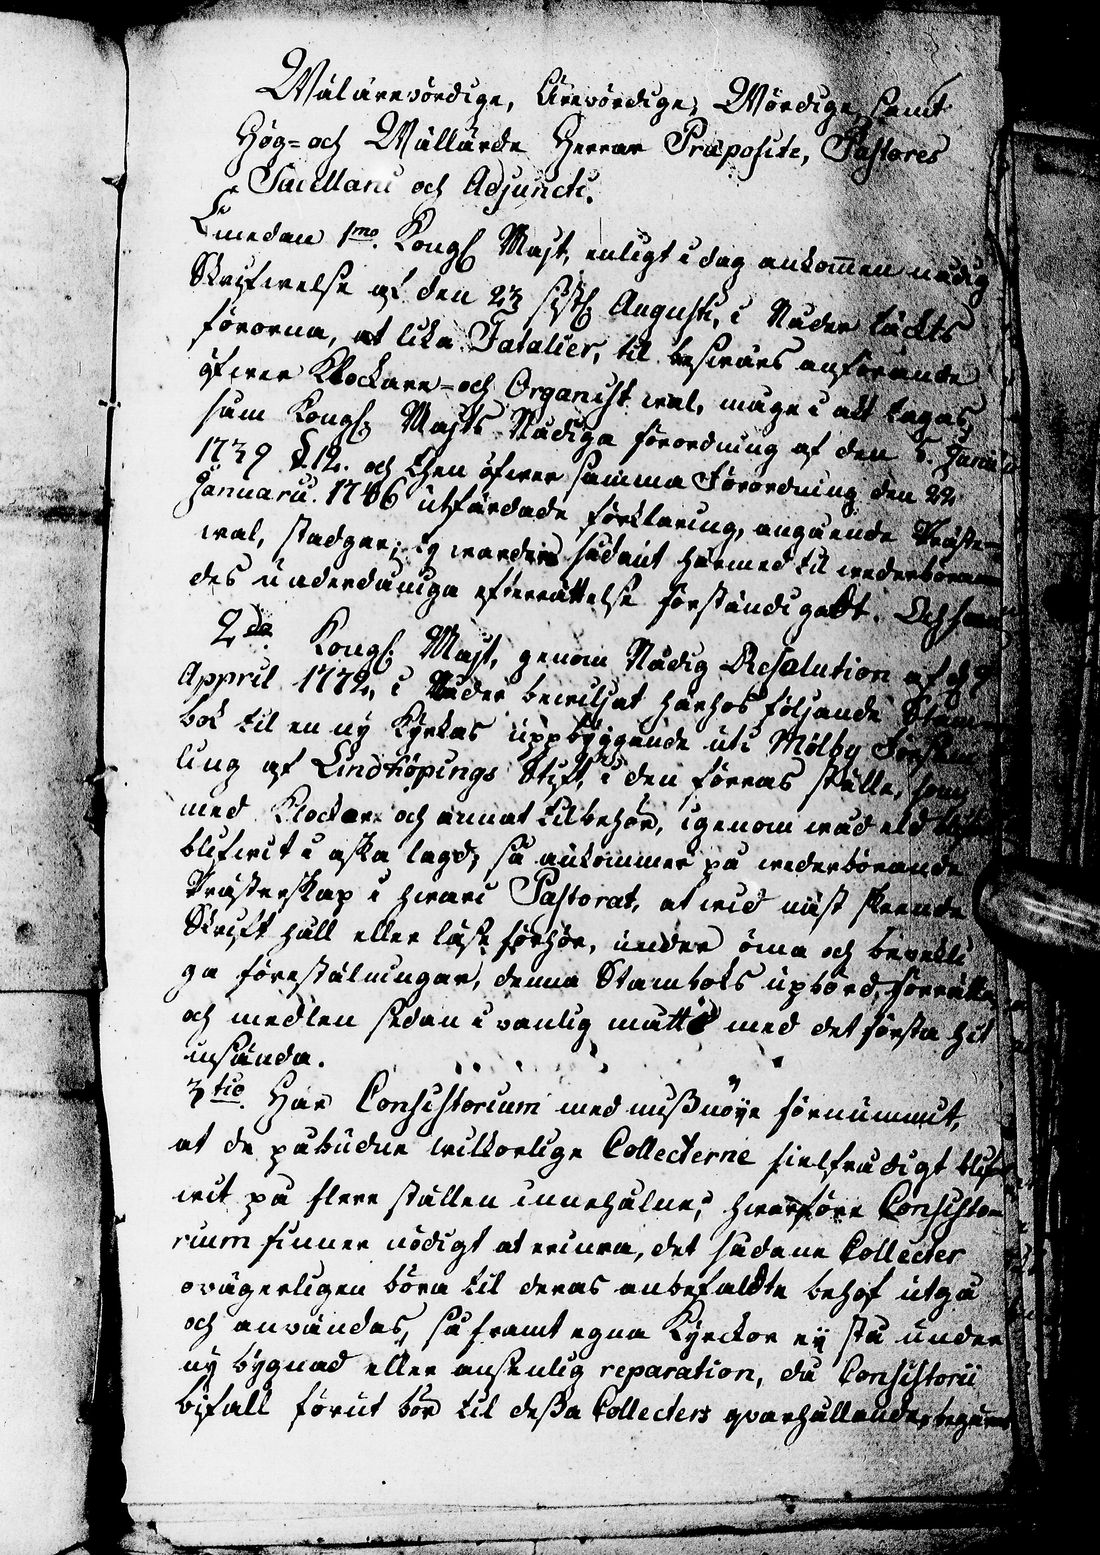 Wälärevördige, Ärevördige, Wördige, samt
Hög= och Wällärde Herrar Præposite, Pastores
Sacellani och Adjuncti.
Emedan 1mo. Kongl Majt, enligt i dag ankommen nådig
Skrifwelse af den 23 sistl Augusti, i Nåder täckts
förorna, at lika Fatalier, til beswärs anförande
öfwer Klockare= och Organist wal, måge i akt tagas,
som Kongl. Majts Nådiga förordning af den
1739 §.12. och then öfwer samma Förordning den 22
Januarii. 1746 utfärdade förklaring, angående Präste=
wal, stadgar; ty warder sådant härmed til wederböran
des underdåniga efterrättelse förständigadt. Och som
2do Kongl. Majt, genom Nådig Resolution af d 9
Appril 1772, i Nåder bewiljat härhos följande Stam=
bok til en ny Kyrkas uppbyggande uti Mölby Försam
ling af Lindköpings Stift, i den förras ställe, som
med Klockar och annat tilbehör, igenom wåd eld
blifwit i aska lagd; så ankommer på wederbörande
Prästerskap i hwart Pastorat, at wid näst skeende
Skrift håll eller läse förhör, under öma och bevekli
ga föreställningar, denna Stamboks upbörd, förrätta
och medlen sedan i vanlig måtto med det första hit
insända.
3tio. Har Consistorium med missnöye förnummit,
at de påbudne wilkorlige Collecterne sielfrådigt blif
wit på flere ställen innehålne; hwarföre Consisto
rium finner nödigt at erinra, det sådane Collecter
ovägerligen böra til deras anbefaldte behof utgå
och användas, så framt egna Kyrckor ey stå under
ny bygnad eller ansenlig reparation, då Consistorii
bifall förut bör til dessa Collecters qvarhållande, begäras